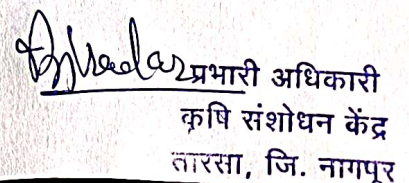 प्रभारी अधिकारी
कृषि संशोधन केंद्र
तारसा, जि. नागपूर